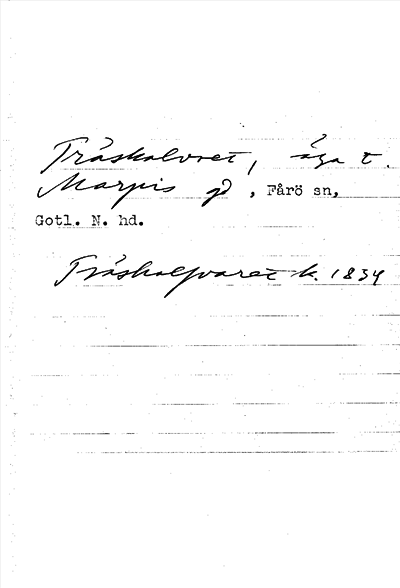 Träskalvret, äga t.
Marpis gd, Fårö sn,
Gotl. N. hd.
Träskalfvaret k. 1834